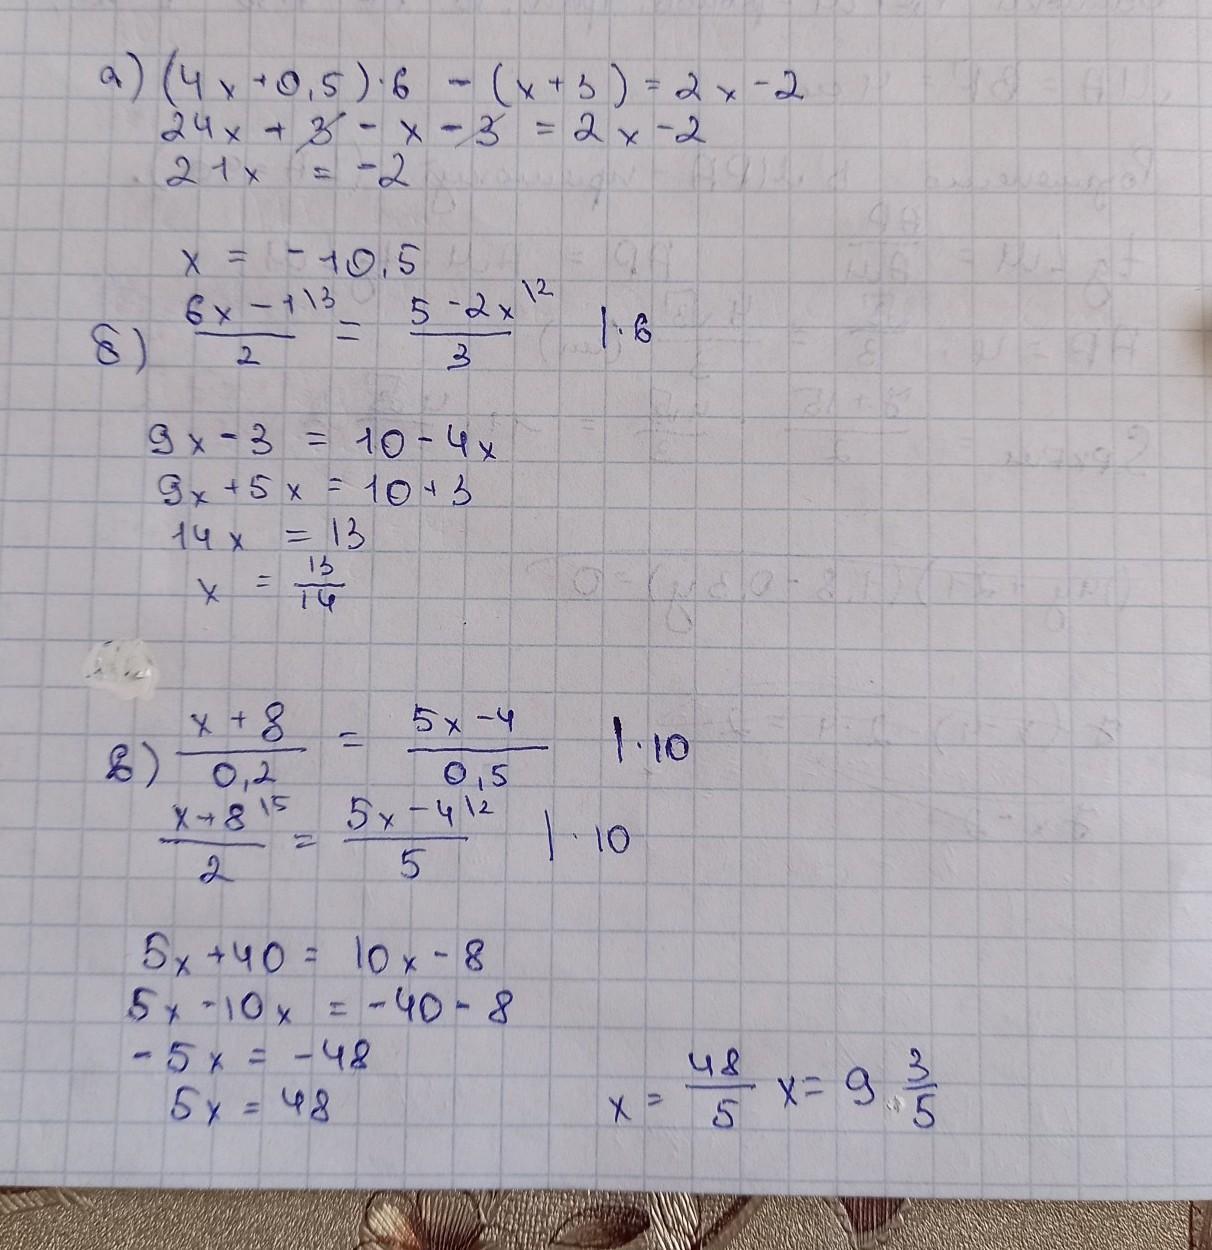 а) (4x+0,5)·6 - (x+3) = 2x-2
24x + 3 - x - 3 = 2x-2
21x = -2
x = -10,5
б) \frac{6x-1^{\backslash 3}}{2} = \frac{5-2x^{\backslash 2}}{3} |·6
9x-3 = 10-4x
9x+5x = 10+3
14x = 13
x = \frac{13}{14}
в) \frac{x+8}{0,2} = \frac{5x-4}{0,5} |·10
\frac{x+8^{\backslash 5}}{2} = \frac{5x-4^{\backslash 2}}{5} |·10
5x+40 = 10x-8
5x-10x = -40-8
-5x = -48
5x = 48
x = \frac{48}{5} x = 9\frac{3}{5}